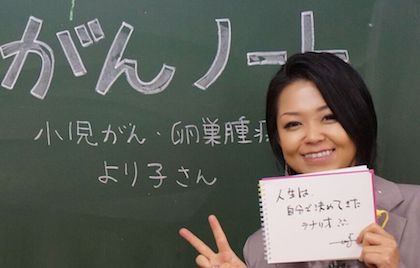 がんノート
小児がん・卵巣腫瘍
より子さん
人生は、
自分で決めてきた
シナリオ